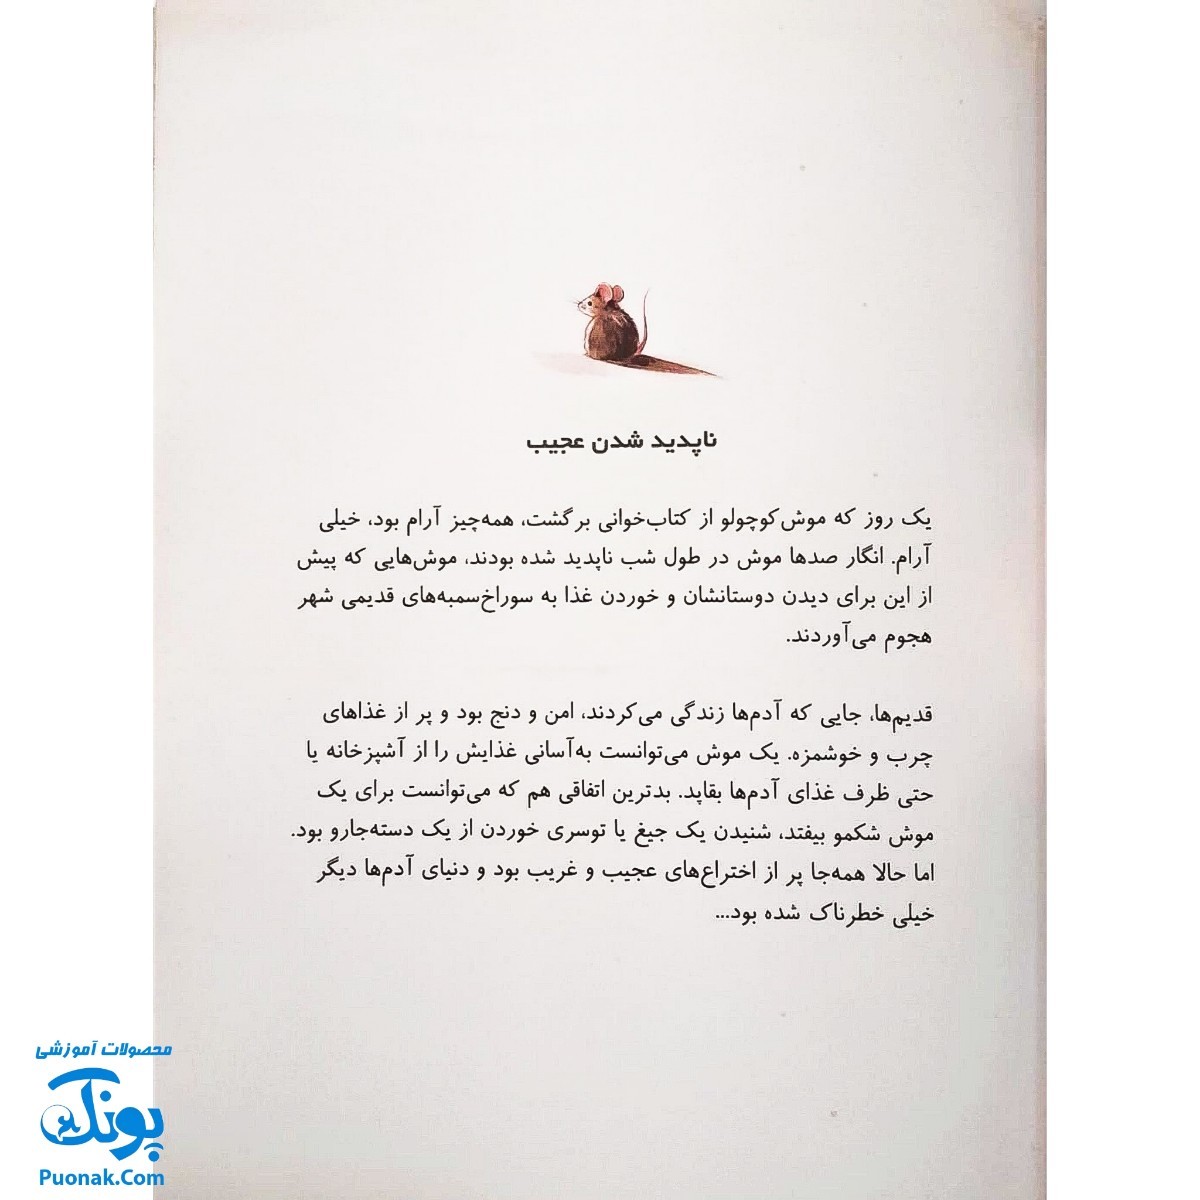 ناپدید شدن عجیب
یک روز که موش‌کوچولو از کتاب‌خوانی برگشت، همه‌چیز آرام بود، خیلی
آرام. انگار صدها موش در طول شب ناپدید شده بودند، موش‌هایی که پیش
از این برای دیدن دوستانشان و خوردن غذا به سوراخ‌سمبه‌های قدیمی شهر
هجوم می‌آوردند.
قدیم‌ها، جایی که آدم‌ها زندگی می‌کردند، امن و دنج بود و پر از غذاهای
چرب و خوشمزه. یک موش می‌توانست به‌آسانی غذایش را از آشپزخانه یا
حتی ظرف غذای آدم‌ها بقاپد. بدترین اتفاقی هم که می‌توانست برای یک
موش شکمو بیفتد، شنیدن یک جیغ یا توسری خوردن از یک دسته‌جارو بود.
اما حالا همه‌جا پر از اختراع‌های عجیب و غریب بود و دنیای آدم‌ها دیگر
خیلی خطرناک شده بود...
محصولات آموزشی
پونک
Puonak.Com